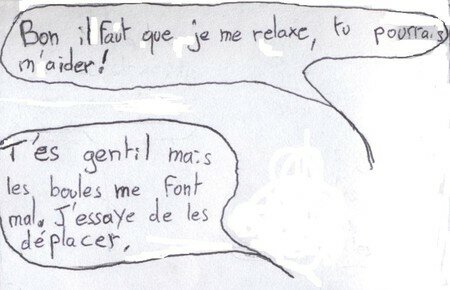 Bon il faut que je me relaxe, tu pourrais
m'aider!
T'es gentil mais
les boules me font
mal. J'essaye de les
déplacer.